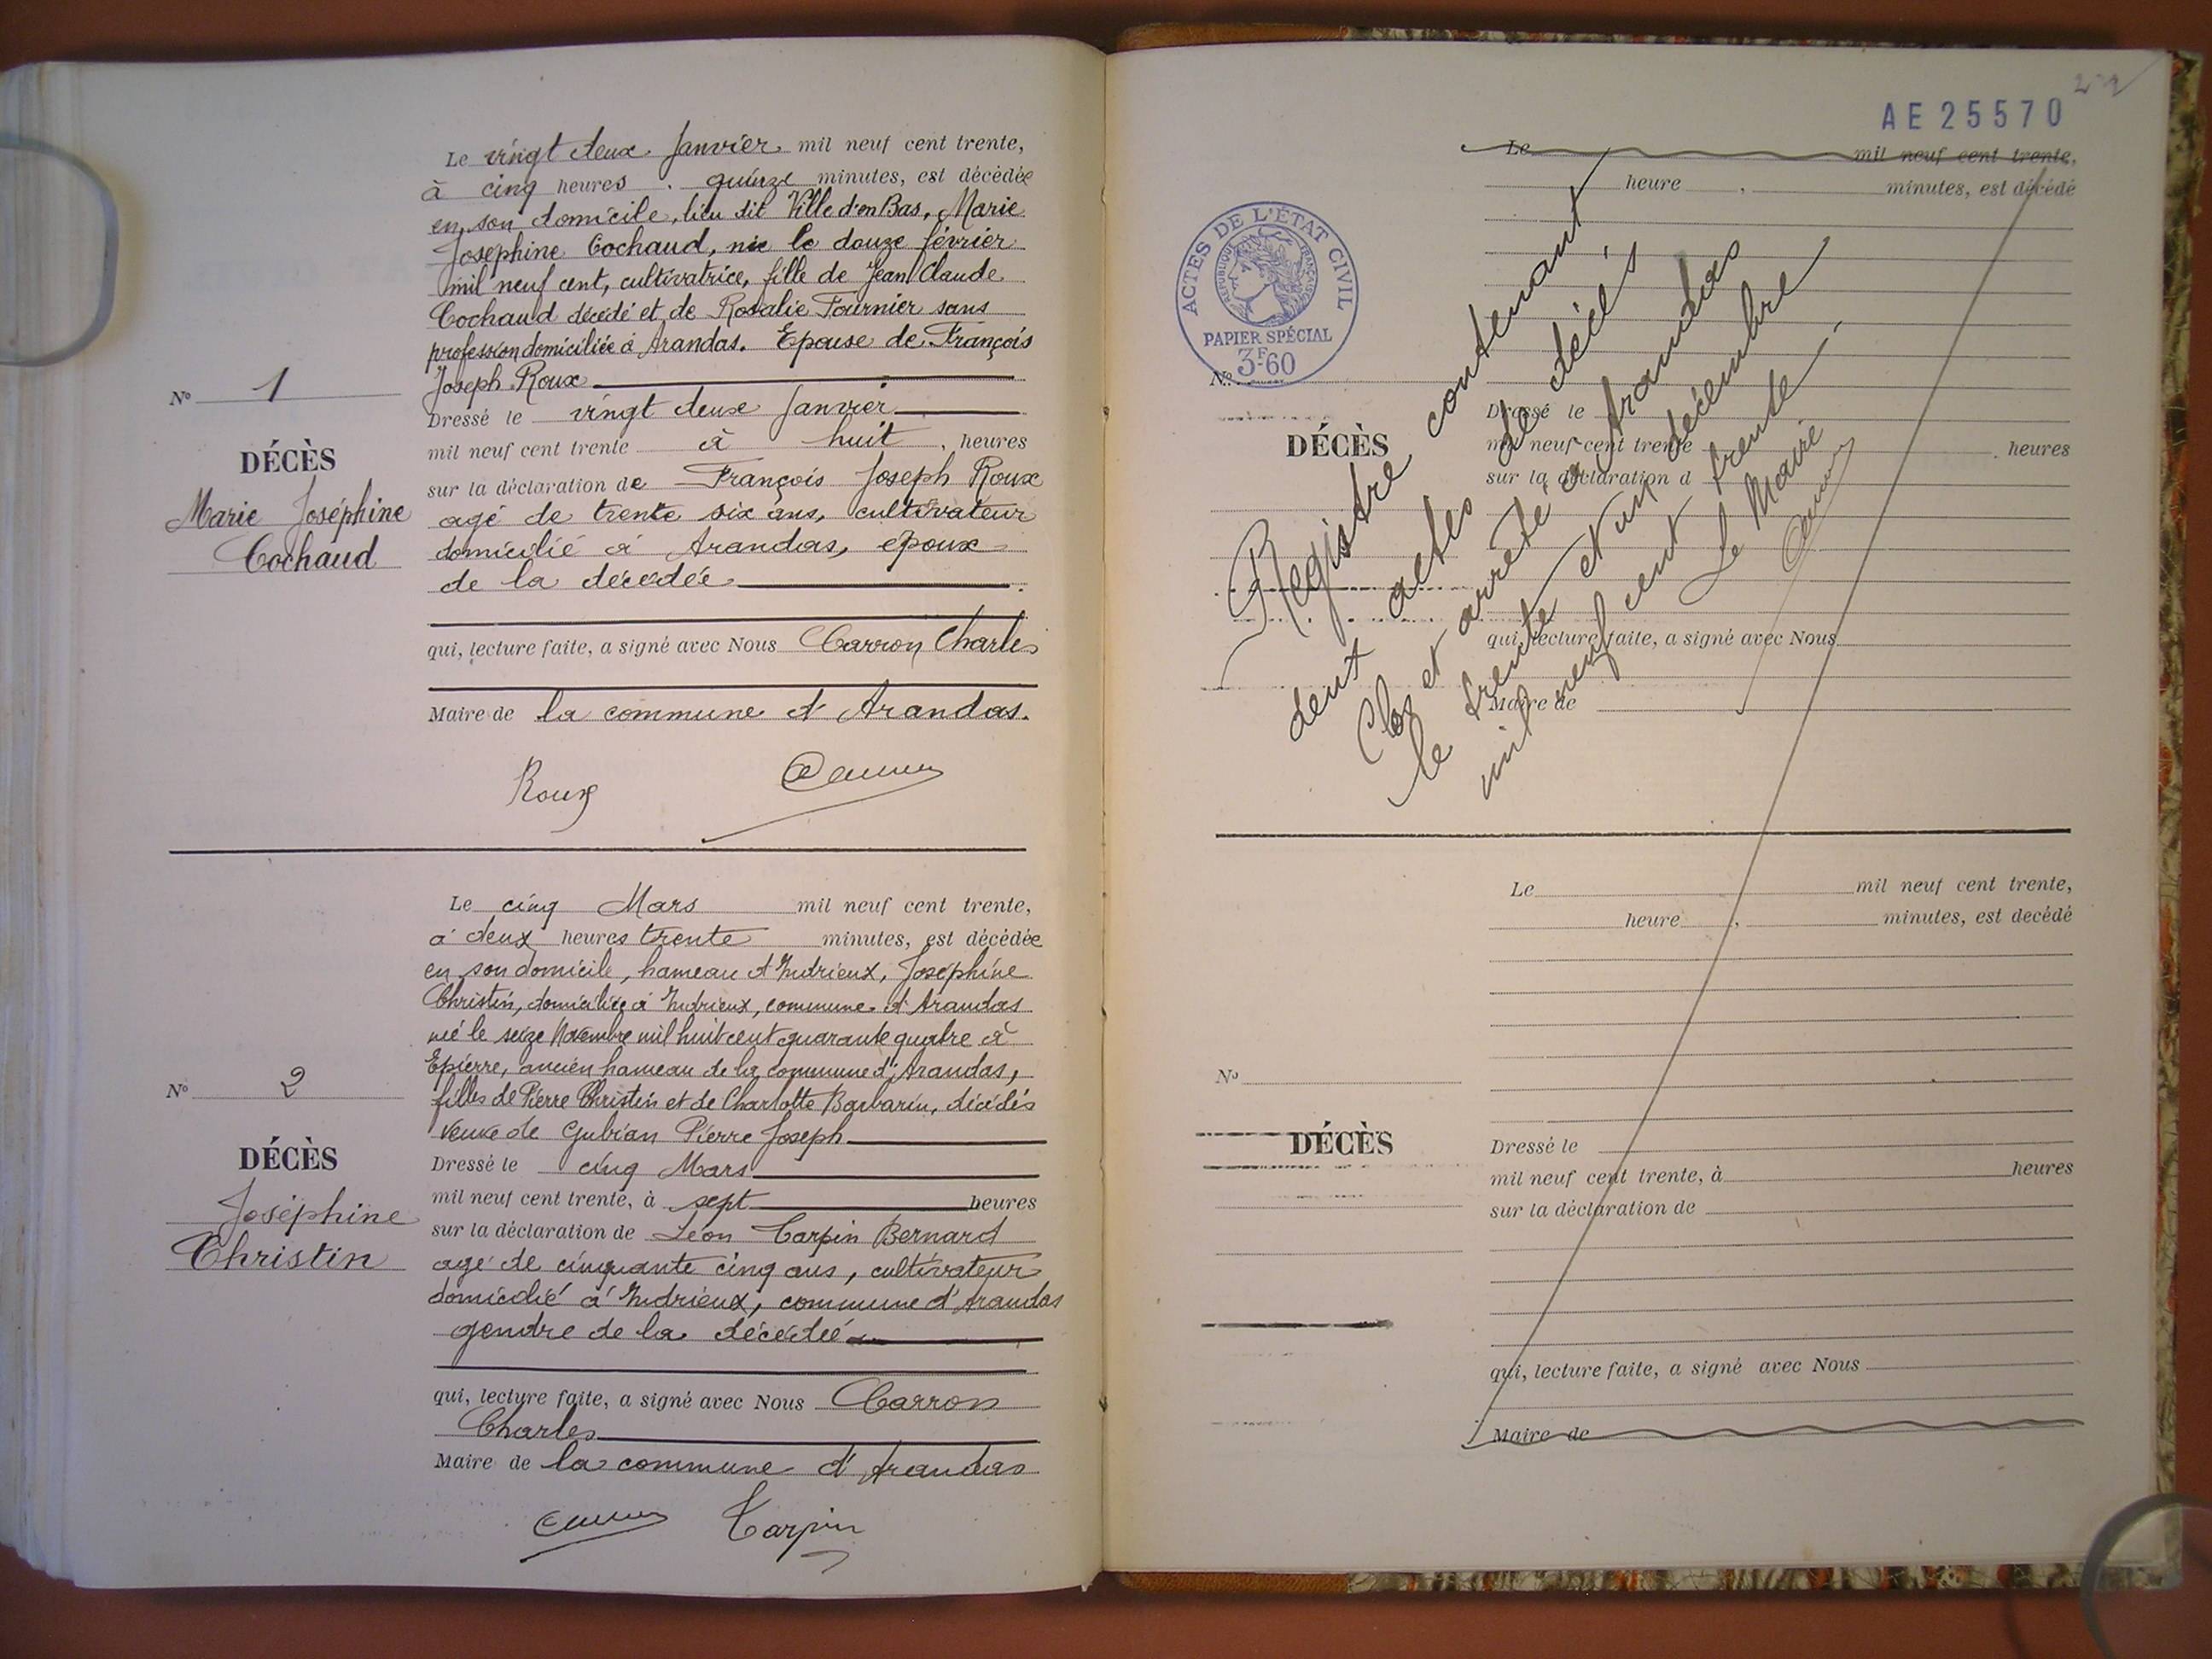 Le vingt deux Janvier mil neuf cent trente,
à cinq heures quinze minutes, est décédée
en son domicile, lieu dit Ville d'en Bas, Marie
Joséphine Cochaud, née le douze février
mil neuf cent, cultivatrice, fille de Jean Claude
Cochaud décédé et de Rosalie Fournier sans
profession domiciliée à Arandas. Epouse de François
Joseph Roux
N° 1
DÉCÈS
Marie Joséphine
Cochaud
Dressé le vingt deux Janvier
mil neuf cent trente à huit heures
sur la déclaration de François Joseph Roux
agé de trente six ans, cultivateur
domicilié à Arandas, epoux
de la décédée
qui, lecture faite, a signé avec Nous Carron Charles
Maire de la commune d'Arandas.
Roux
Le cinq Mars mil neuf cent trente,
à deux heures trente minutes, est décédée
en son domicile, hameau d'Indrieux, Joséphine
Christin, domiciliée à Indrieux, commune d'Arandas
née le seize Novembre mil huit cent quarante quatre à
Epierre, ancien hameau de la commune d'Arandas,
filles de Pierre Christin et de Charlotte Barbarin, décédés
veuve de Gubian Pierre Joseph
N° 2
DÉCÈS
Joséphine
Christin
Dressé le cinq Mars
mil neuf cent trente, à sept heures
sur la déclaration de Léon Carpin Bernard
agé de cinquante cinq ans, cultivateur
domicilié à Indrieux, commune d'Arandas
gendre de la décédée
qui, lecture faite, a signé avec Nous Carron
Charles
Maire de la commune d'Arandas
Carpin
AE 25570
Le mil neuf cent trente,
heure , minutes, est décédé
ACTES DE L'ÉTAT CIVIL
RÉPUBLIQUE FRANÇAISE
PAPIER SPÉCIAL
3F60
N°
DÉCÈS
Dressé le
mil neuf cent trente heures
sur la déclaration d
qui, lecture faite, a signé avec Nous
Maire de
Registre contenant
deux actes de décés
Clos et arrêté à Arandas
le trente et un décembre
mil neuf cent trente
Le Maire
Le mil neuf cent trente,
heure , minutes, est decédé
N°
DÉCÈS
Dressé le
mil neuf cent trente, à heures
sur la déclaration de
qui, lecture faite, a signé avec Nous
Maire de